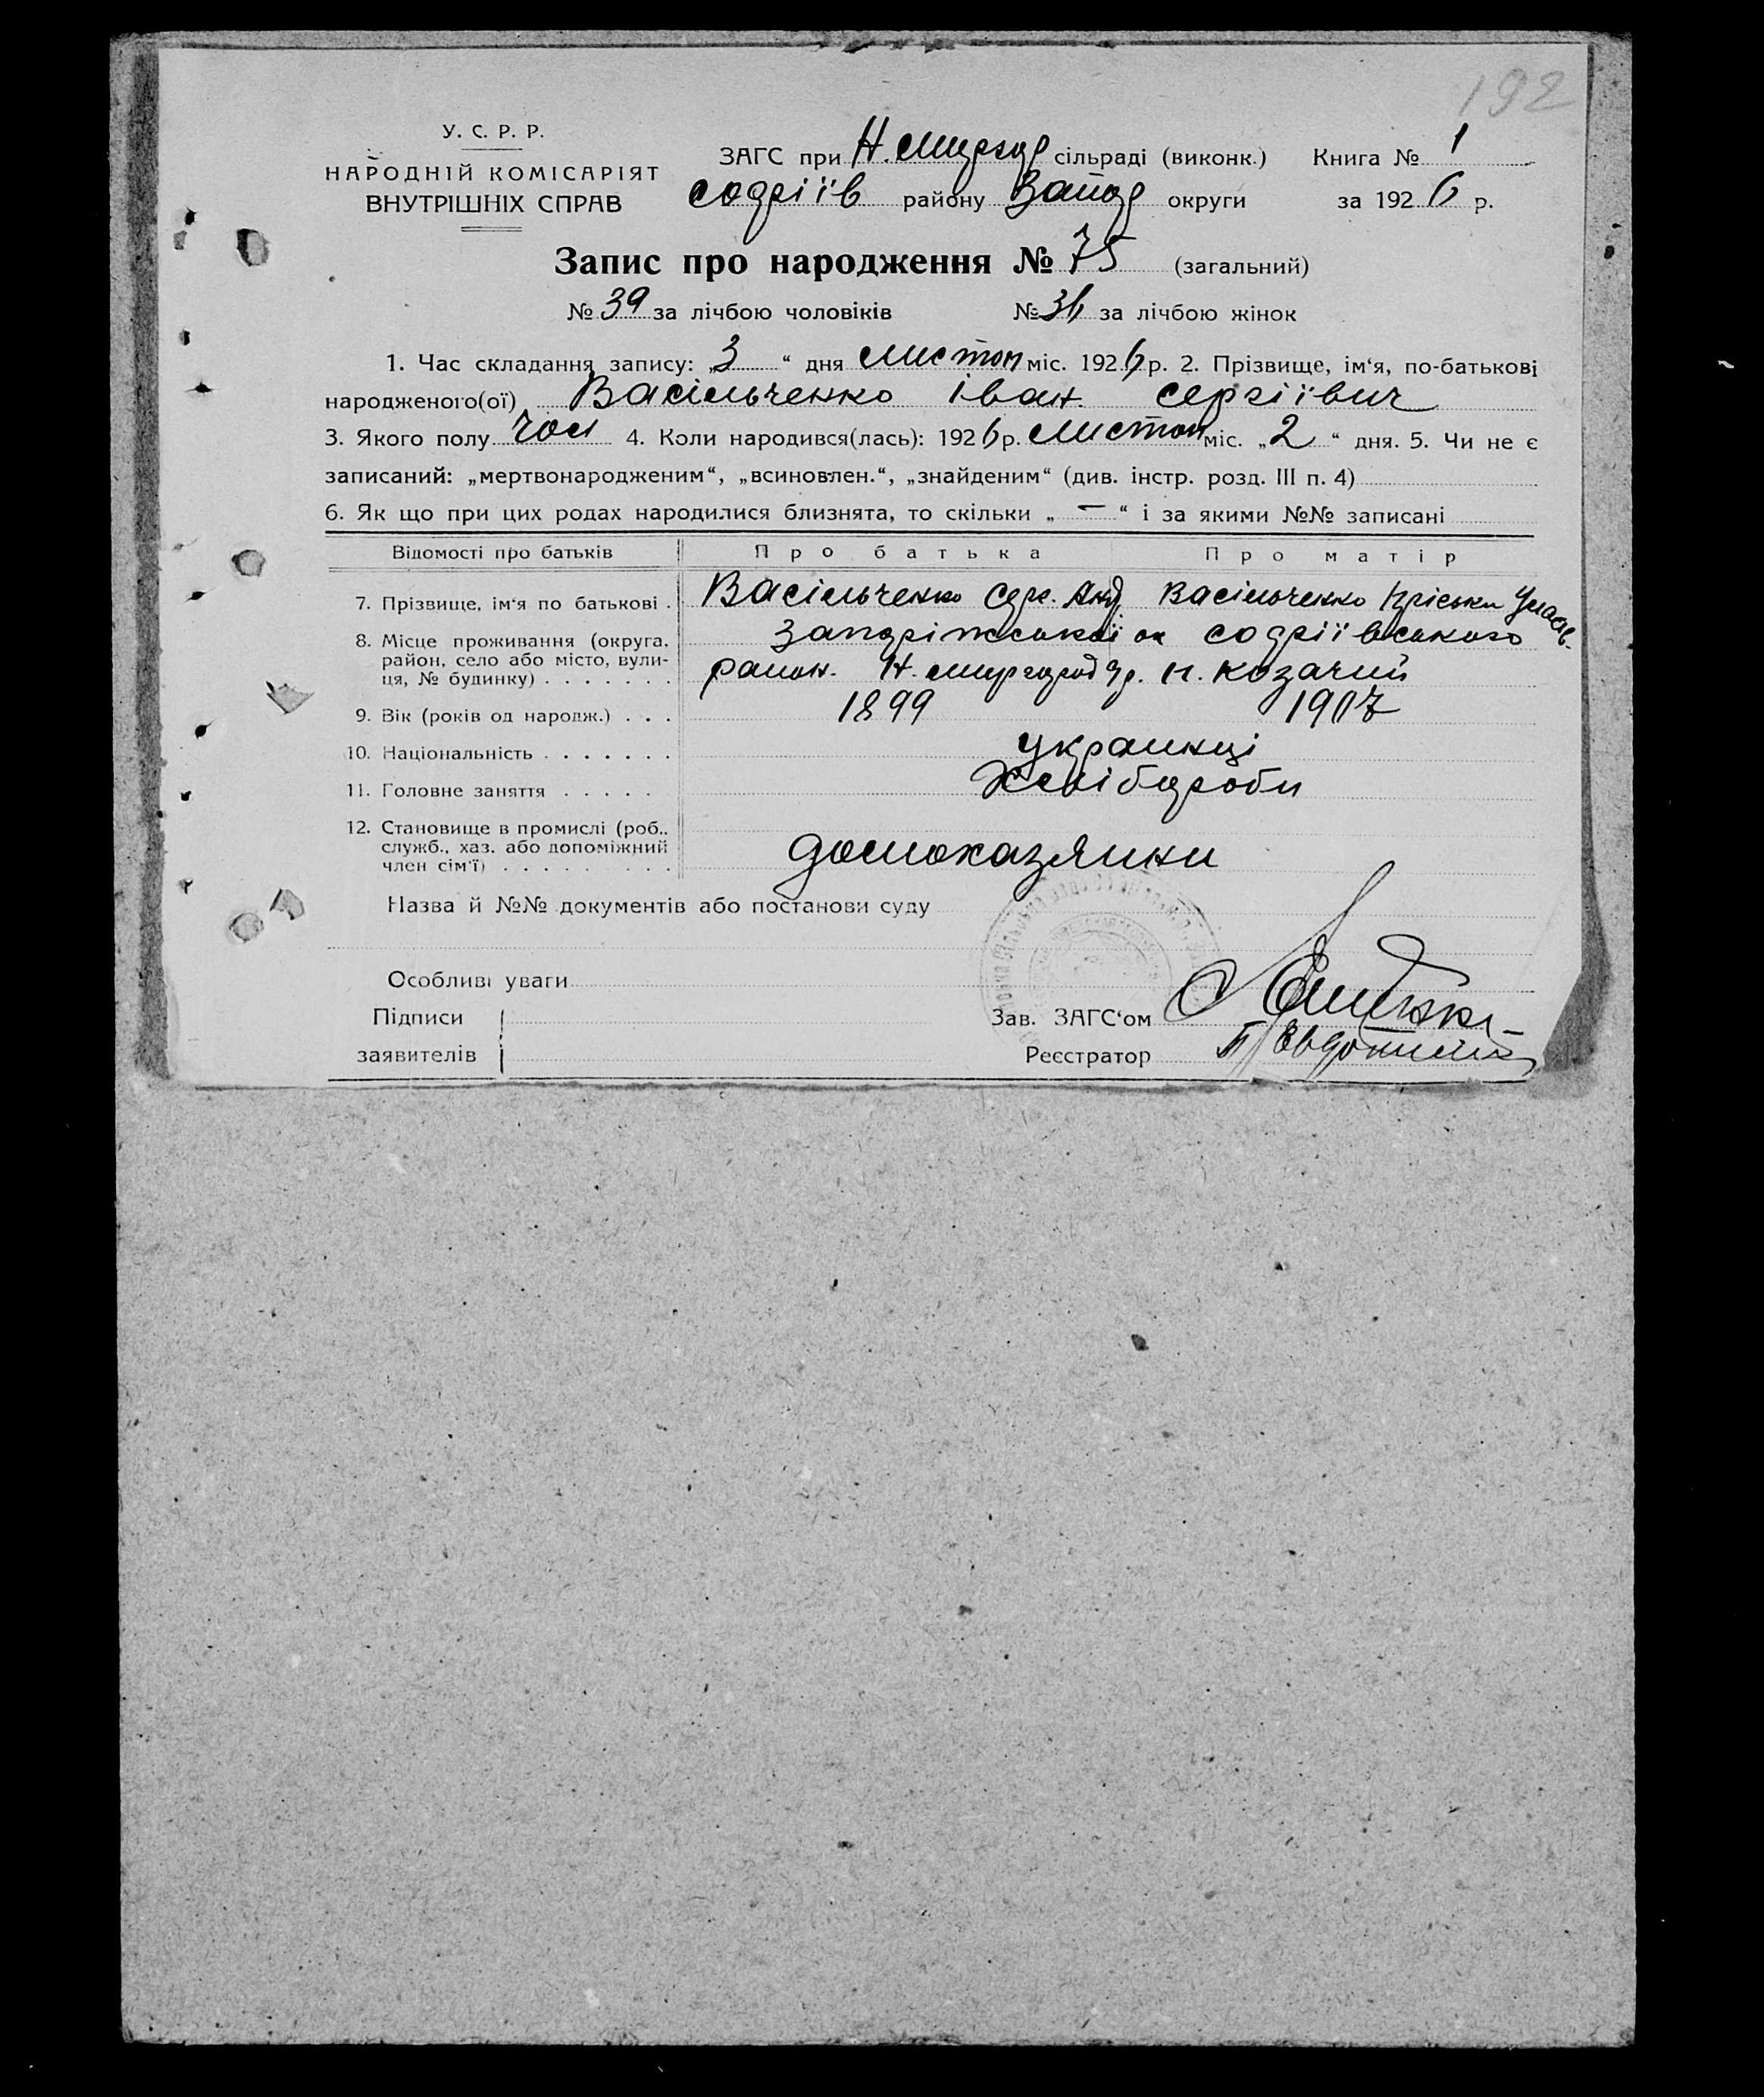 192
У. С. Р. Р.
НАРОДНІЙ КОМІСАРІЯТ
ВНУТРІШНІХ СПРАВ
ЗАГС при Н. Миргор сільраді (виконк.) Книга № 1
Софіїв району Запор округи за 1926 р.
Запис про народження № 75 (загальний)
№ 39 за лічбою чоловіків № 36 за лічбою жінок
1. Час складання запису: „3“ дня листоп міс. 1926 р. 2. Прізвище, ім‘я, по-батькові
народженого(ої) Васільченко Іван Сергіївич
3. Якого полу чол 4. Коли народився(лась): 1926 р. листоп міс. „2“ дня. 5. Чи не є
записаний: „мертвонародженим“, „всиновлен.“, „знайденим“ (див. інстр. розд. III п. 4)
6. Як що при цих родах народилися близнята, то скільки „—“ і за якими №№ записані
Відомості про батьків Про батька Про матір
7. Прізвище, ім‘я по батькові . Васільченко Серг. Анд. Васільченко Пріська Улас.
8. Місце проживання (округа, район, село або місто, вулиця, № будинку) . . . . . . .
Запоріжської ок Софіївського
район. Н. Миргород п. Козачий
9. Вік (років од народж.) . . . 1899 1907
10. Національність . . . . . . . украинці
11. Головне заняття . . . . . Хлібороби
12. Становище в промислі (роб., служб., хаз. або допоміжний член сім‘ї) . . . . . . . .
домохазяини
Назва й №№ документів або постанови суду
Особливі уваги
Підписи
заявителів
Зав. ЗАГС‘ом
Реєстратор